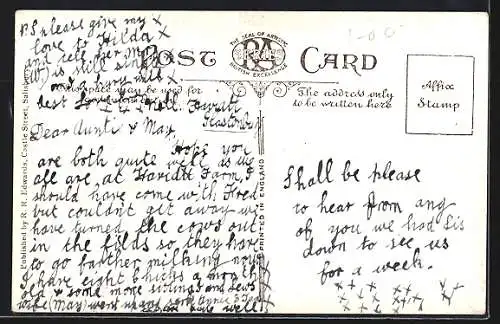 P.S please give my x
love to Hilda x
and tell her Mon
is still sing
my very milk x
best
POST CARD
THE SEAL OF ARTISTIC
BRITISH EXCELLENCE
RA
may be used for
The address only
to be written here
Affix
Stamp
1-00
Dear Aunte & May,
Hope you
are both quite well as we
all are at Farm, I
should have come with Fred
but couldn't get away we
have turned the cows out
in the filds so they have
to go farther milking now
I have eight chicks a month
old & some more sitting and Lew's
wife (May)
are well
Shall be please
to hear from any
of you we had Sis
down to see us
for a week.
x x x x x x
x x x x x
Published by R. R. Edwards, Castle Street, Salisbury
PRINTED IN ENGLAND